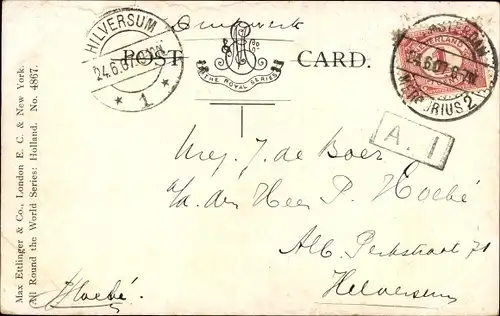 Drukwerk
POST CARD.
THE ROYAL SERIES
HILVERSUM
24.6.07
* 1 *
24.6.07
2
A. I
Mej. J. de Boer
a/a den Heer P. Hoebé
Alb. Perkstraat 71
Hilversum
PHoebé.
Max Ettlinger & Co., London E. C. & New York.
All Round the World Series: Holland. No. 4867.